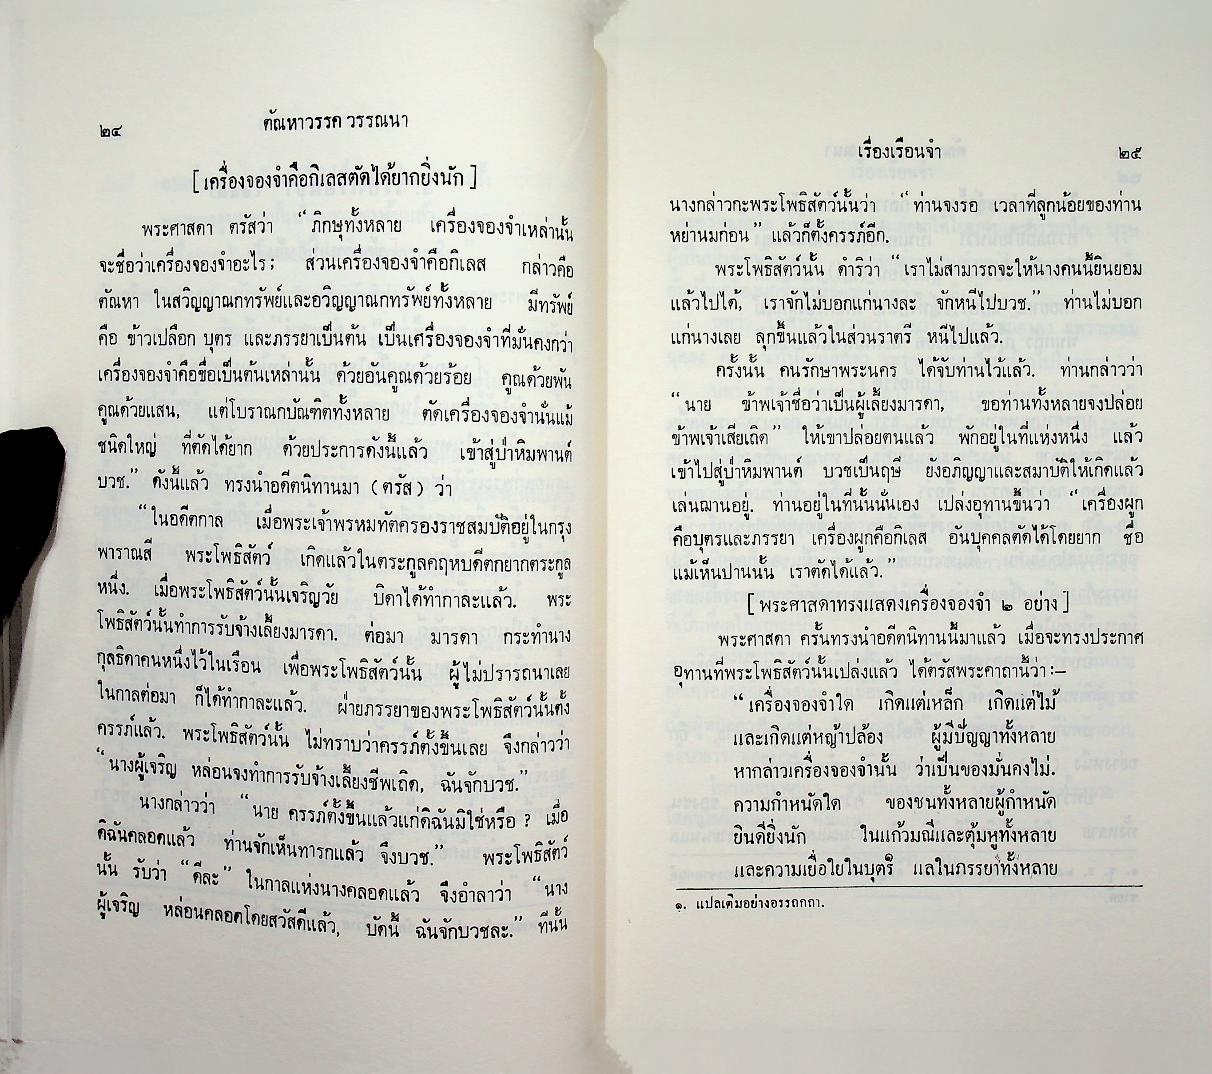 ๒๔
ตัณหาวรรค วรรณนา
[ เครื่องจองจำคือกิเลสตัดได้ยากยิ่งนัก ]
พระศาสดา ตรัสว่า “ภิกษุทั้งหลาย เครื่องจองจำเหล่านั้น
จะชื่อว่าเครื่องจองจำอะไร; ส่วนเครื่องจองจำคือกิเลส กล่าวคือ
ตัณหา ในสวิญญาณกทรัพย์และอวิญญาณกทรัพย์ทั้งหลาย มีทรัพย์
คือ ข้าวเปลือก บุตร และภรรยาเป็นต้น เป็นเครื่องจองจำที่มั่นคงกว่า
เครื่องจองจำคือขื่อเป็นต้นเหล่านั้น ด้วยอันคูณด้วยร้อย คูณด้วยพัน
คูณด้วยแสน, แต่โบราณกบัณฑิตทั้งหลาย ตัดเครื่องจองจำนั่นแม้
ชนิดใหญ่ ที่ตัดได้ยาก ด้วยประการดังนี้แล้ว เข้าสู่ป่าหิมพานต์
บวช.” ดังนี้แล้ว ทรงนำอดีตนิทานมา ( ตรัส ) ว่า
“ในอดีตกาล เมื่อพระเจ้าพรหมทัตครองราชสมบัติอยู่ในกรุง
พาราณสี พระโพธิสัตว์ เกิดแล้วในตระกูลคฤหบดีตกยากตระกูล
หนึ่ง. เมื่อพระโพธิสัตว์นั้นเจริญวัย บิดาได้ทำกาละแล้ว. พระ
โพธิสัตว์นั้นทำการรับจ้างเลี้ยงมารดา. ต่อมา มารดา กระทำนาง
กุลธิดาคนหนึ่งไว้ในเรือน เพื่อพระโพธิสัตว์นั้น ผู้ไม่ปรารถนาเลย
ในกาลต่อมา ก็ได้ทำกาละแล้ว. ฝ่ายภรรยาของพระโพธิสัตว์นั้นตั้ง
ครรภ์แล้ว. พระโพธิสัตว์นั้น ไม่ทราบว่าครรภ์ตั้งขึ้นเลย จึงกล่าวว่า
“นางผู้เจริญ หล่อนจงทำการรับจ้างเลี้ยงชีพเถิด, ฉันจักบวช.”
นางกล่าวว่า “นาย ครรภ์ตั้งขึ้นแล้วแก่ดิฉันมิใช่หรือ ? เมื่อ
ดิฉันคลอดแล้ว ท่านจักเห็นทารกแล้ว จึงบวช.” พระโพธิสัตว์
นั้น รับว่า “ดีละ” ในกาลแห่งนางคลอดแล้ว จึงอำลาว่า “นาง
ผู้เจริญ หล่อนคลอดโดยสวัสดีแล้ว, บัดนี้ ฉันจักบวชละ.” ทีนั้น
เรื่องเรือนจำ
๒๕
นางกล่าวกะพระโพธิสัตว์นั้นว่า “ท่านจงรอ เวลาที่ลูกน้อยของท่าน
หย่านมก่อน” แล้วก็ตั้งครรภ์อีก.
พระโพธิสัตว์นั้น ดำริว่า “เราไม่สามารถจะให้นางคนนี้ยินยอม
แล้วไปได้, เราจักไม่บอกแก่นางละ จักหนีไปบวช.” ท่านไม่บอก
แก่นางเลย ลุกขึ้นแล้วในส่วนราตรี หนีไปแล้ว.
ครั้งนั้น คนรักษาพระนคร ได้จับท่านไว้แล้ว. ท่านกล่าวว่า
“นาย ข้าพเจ้าชื่อว่าเป็นผู้เลี้ยงมารดา, ขอท่านทั้งหลายจงปล่อย
ข้าพเจ้าเสียเถิด” ให้เขาปล่อยตนแล้ว พักอยู่ในที่แห่งหนึ่ง แล้ว
เข้าไปสู่ป่าหิมพานต์ บวชเป็นฤษี ยังอภิญญาและสมาบัติให้เกิดแล้ว
เล่นฌานอยู่. ท่านอยู่ในที่นั้นนั่นเอง เปล่งอุทานขึ้นว่า “เครื่องผูก
คือบุตรและภรรยา เครื่องผูกคือกิเลส อันบุคคลตัดได้โดยยาก ชื่อ
แม้เห็นปานนั้น เราตัดได้แล้ว.”
[ พระศาสดาทรงแสดงเครื่องจองจำ ๒ อย่าง ]
พระศาสดา ครั้นทรงนำอดีตนิทานนี้มาแล้ว เมื่อจะทรงประกาศ
อุทานที่พระโพธิสัตว์นั้นเปล่งแล้ว ได้ตรัสพระคาถานี้ว่า:–
“เครื่องจองจำใด เกิดแต่เหล็ก เกิดแต่ไม้
และเกิดแต่หญ้าปล้อง ผู้มีปัญญาทั้งหลาย
หากล่าวเครื่องจองจำนั้น ว่าเป็นของมั่นคงไม่.
ความกำหนัดใด ของชนทั้งหลายผู้กำหนัด
ยินดียิ่งนัก ในแก้วมณีและตุ้มหูทั้งหลาย
และความเยื่อใยในบุตร๑ แลในภรรยาทั้งหลาย
๑. แปลเติมอย่างอรรถกถา.